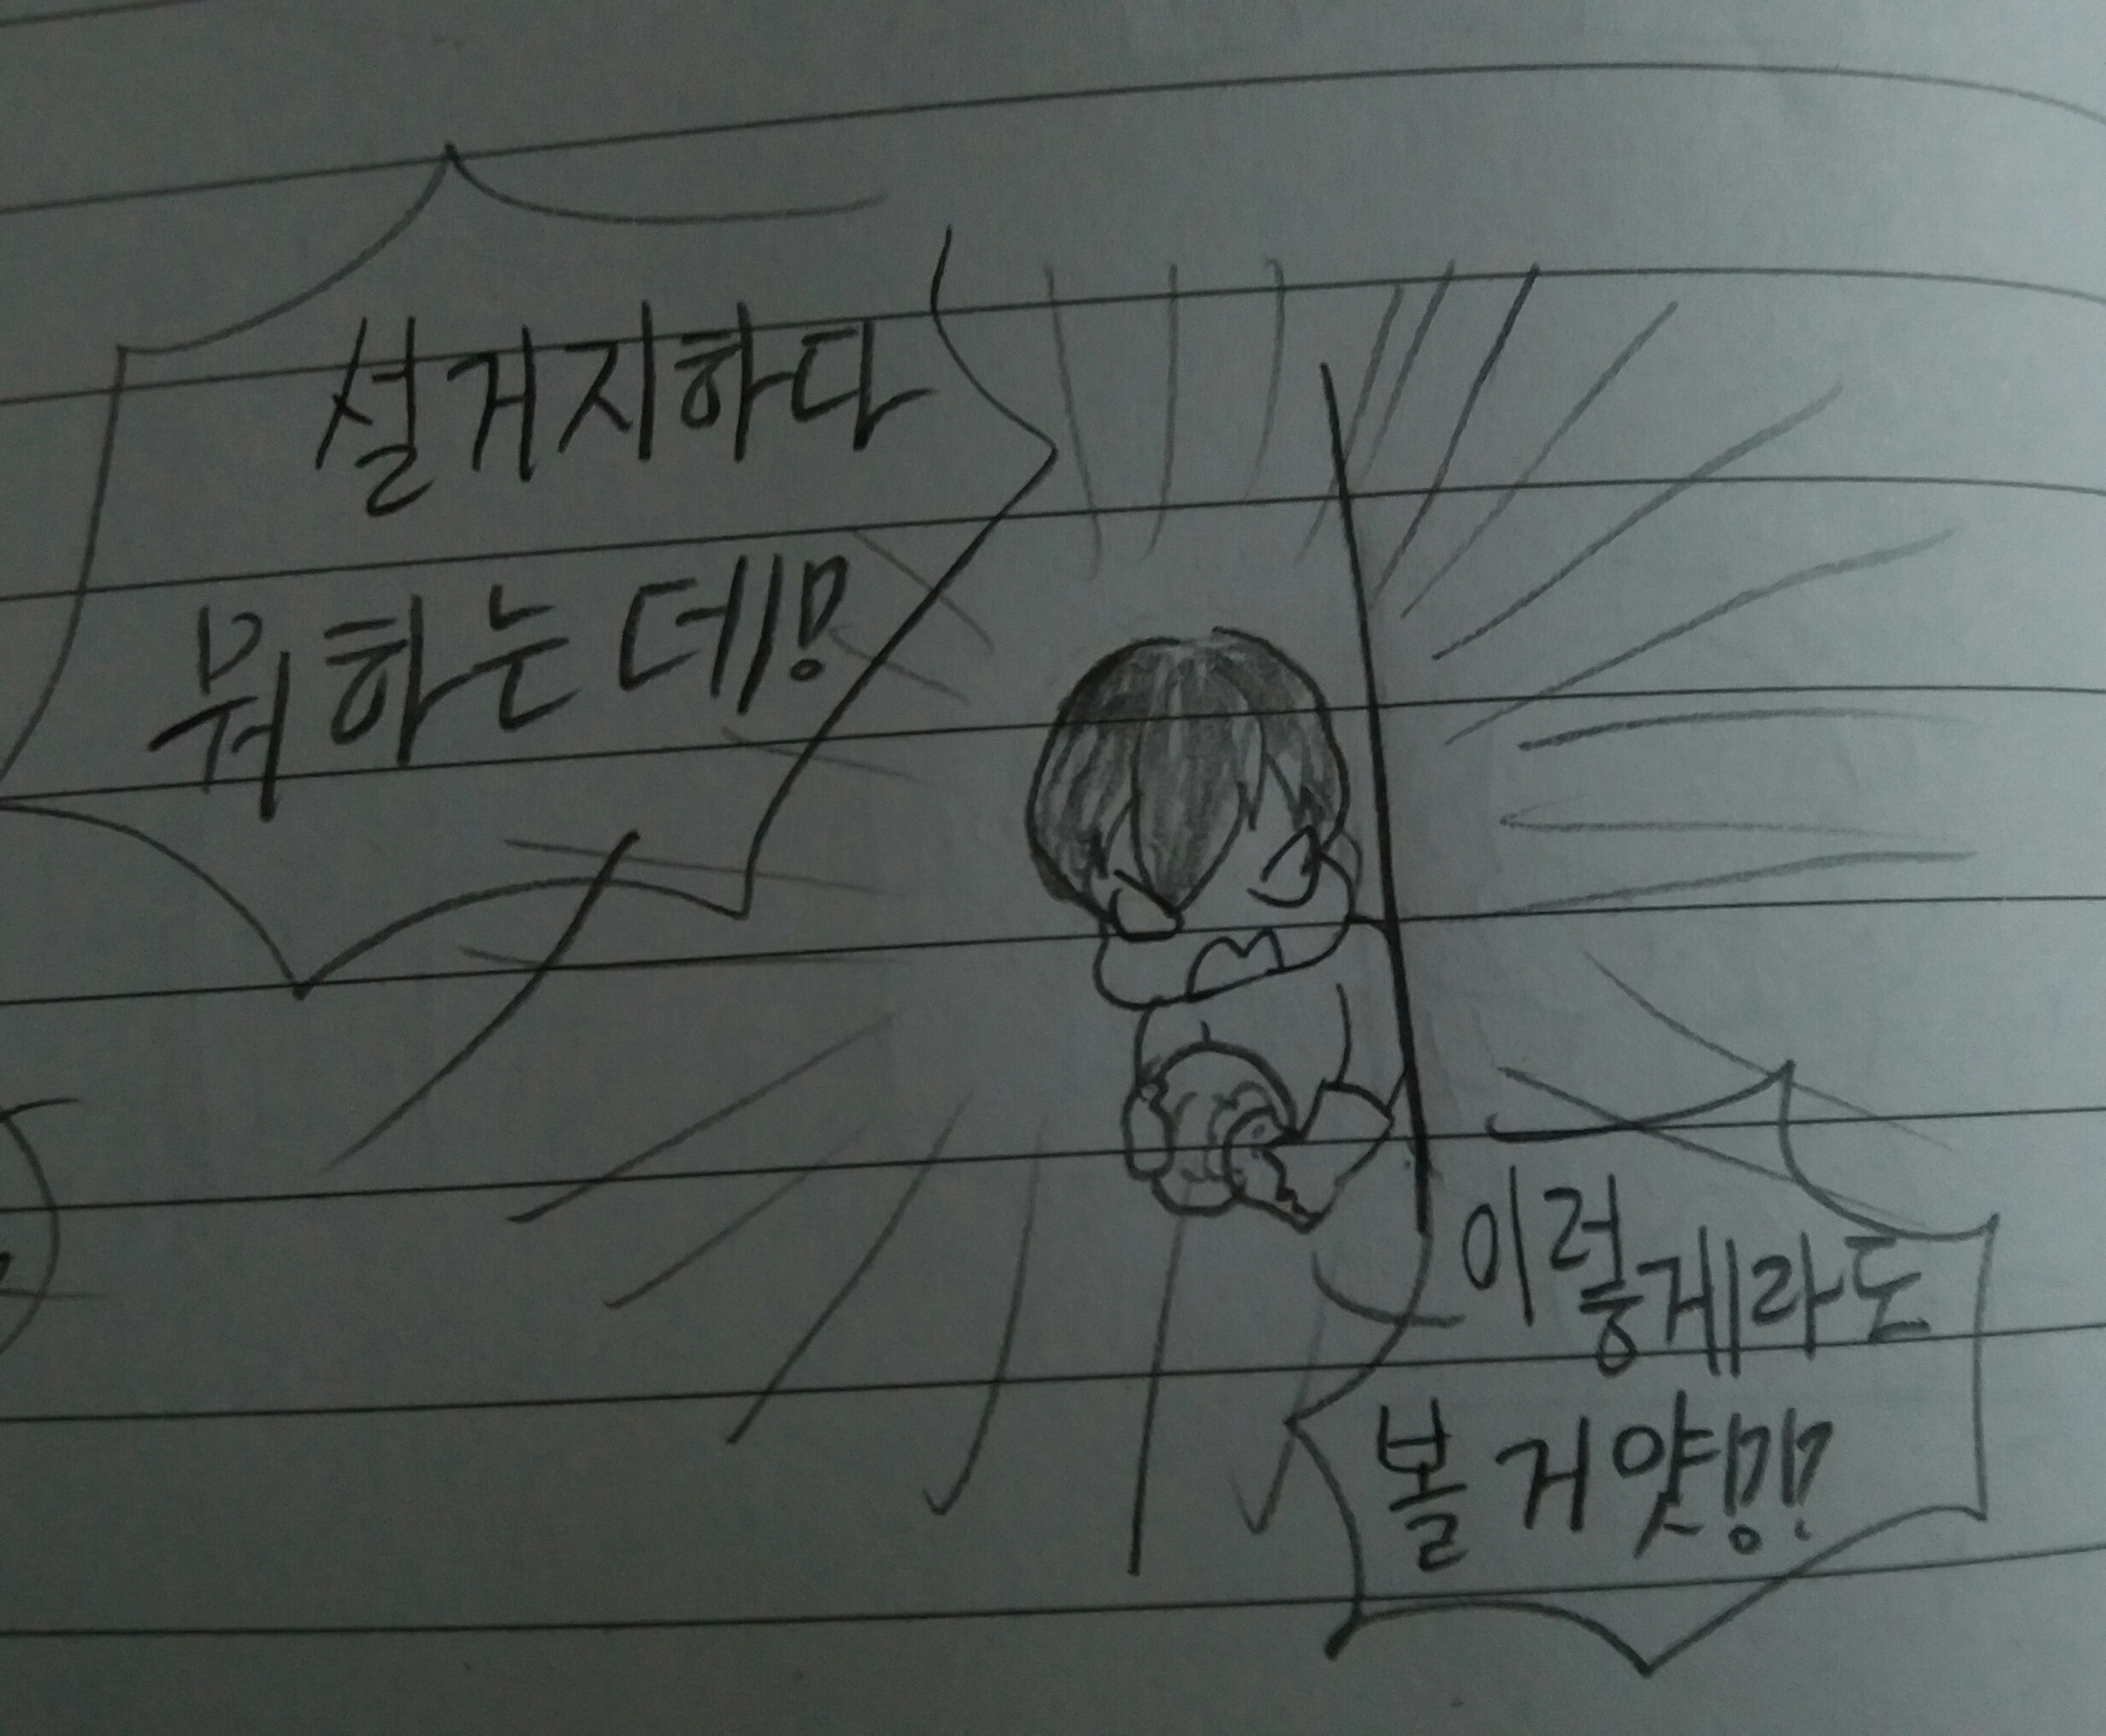 설거지하다
뭐하는데!
이렇게라도
볼거얏!!?